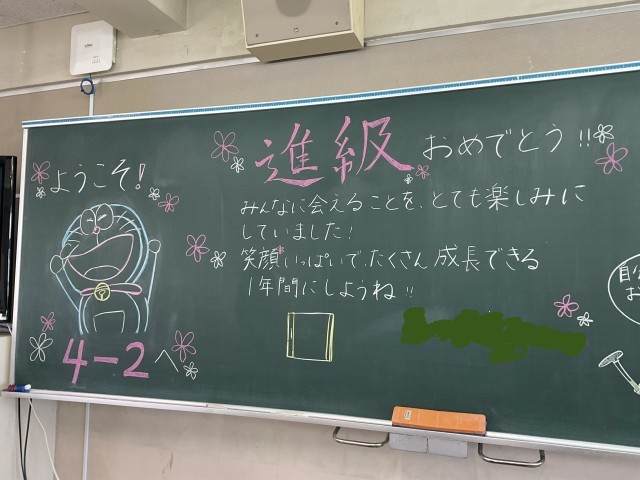 ようこそ!
4-2へ
進級おめでとう!!
みんなに会えることを、とても楽しみに
していました!
笑顔いっぱいで、たくさん成長できる
1年間にしようね!!